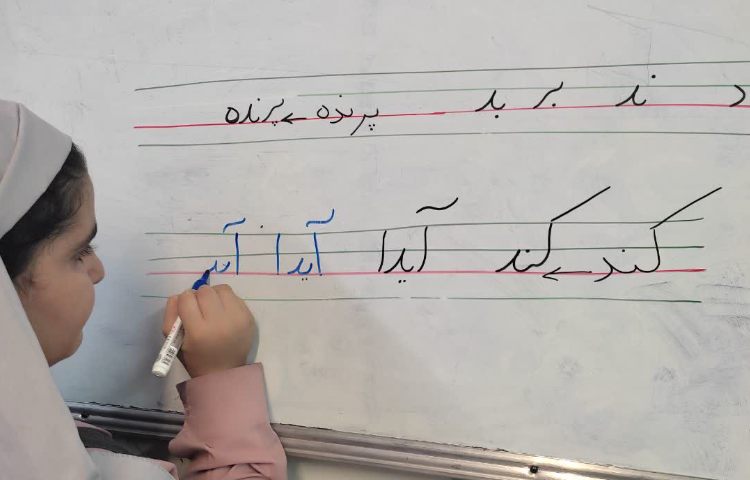 د ند بر بد پرنده ← پرنده
کند ← کند آیدا آیدا آید